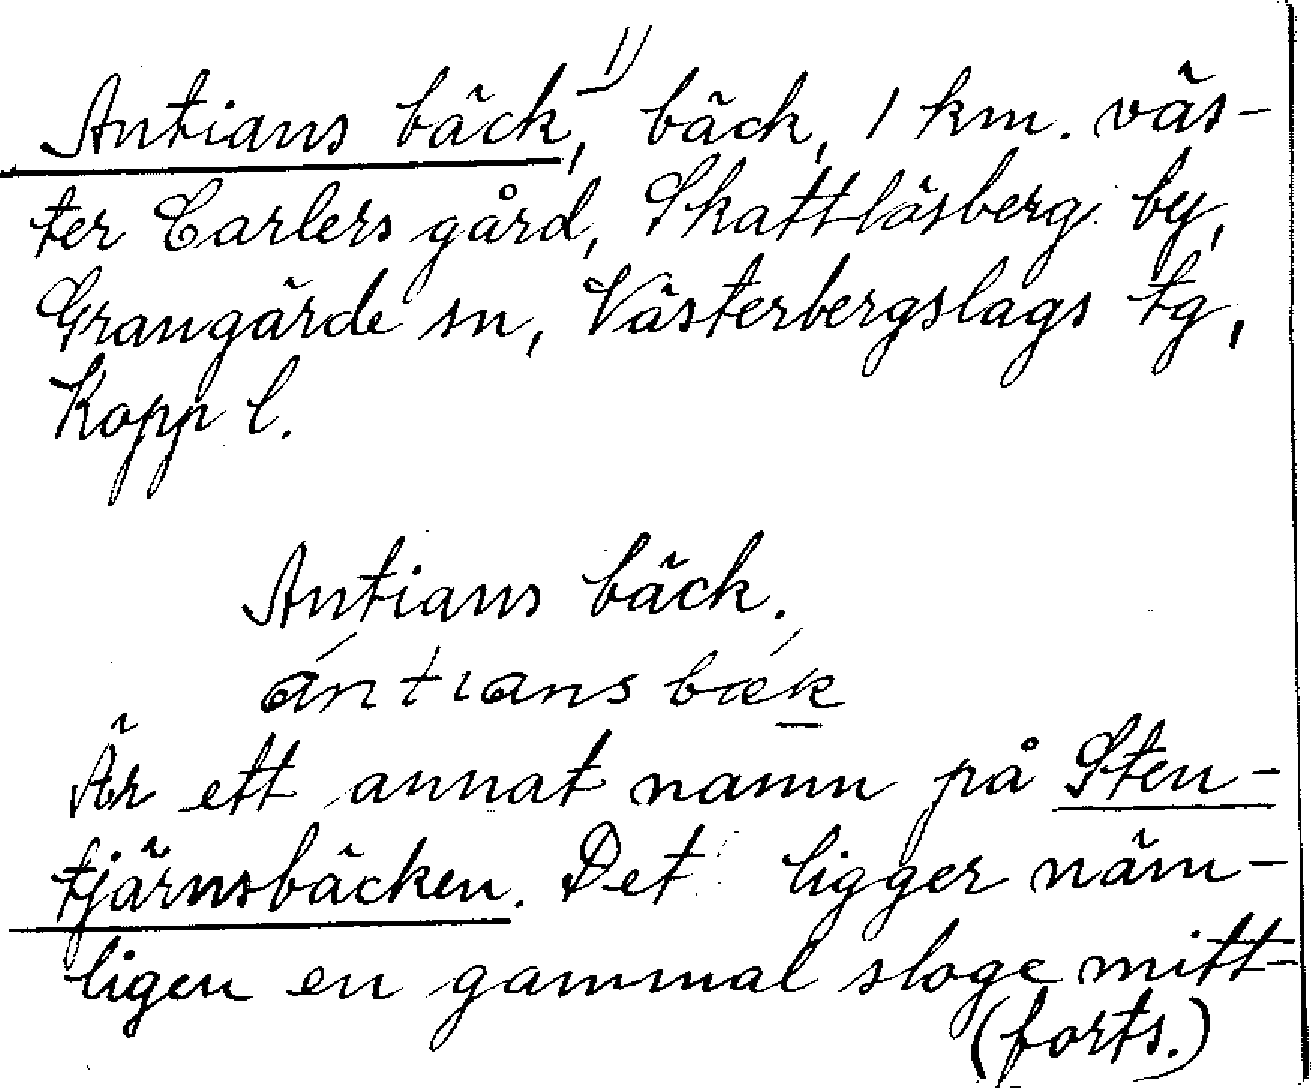 Antians bäck,¹⁾ bäck, 1 km. väs-
ter Carlers gård, Skattlösberg by,
Grangärde sn, Västerbergslags tg,
Kopp l.
Antians bäck.
ántians bæk
Är ett annat namn på Sten-
tjärnsbäcken. Det ligger näm-
ligen en gammal sloge mitt-
(forts.)